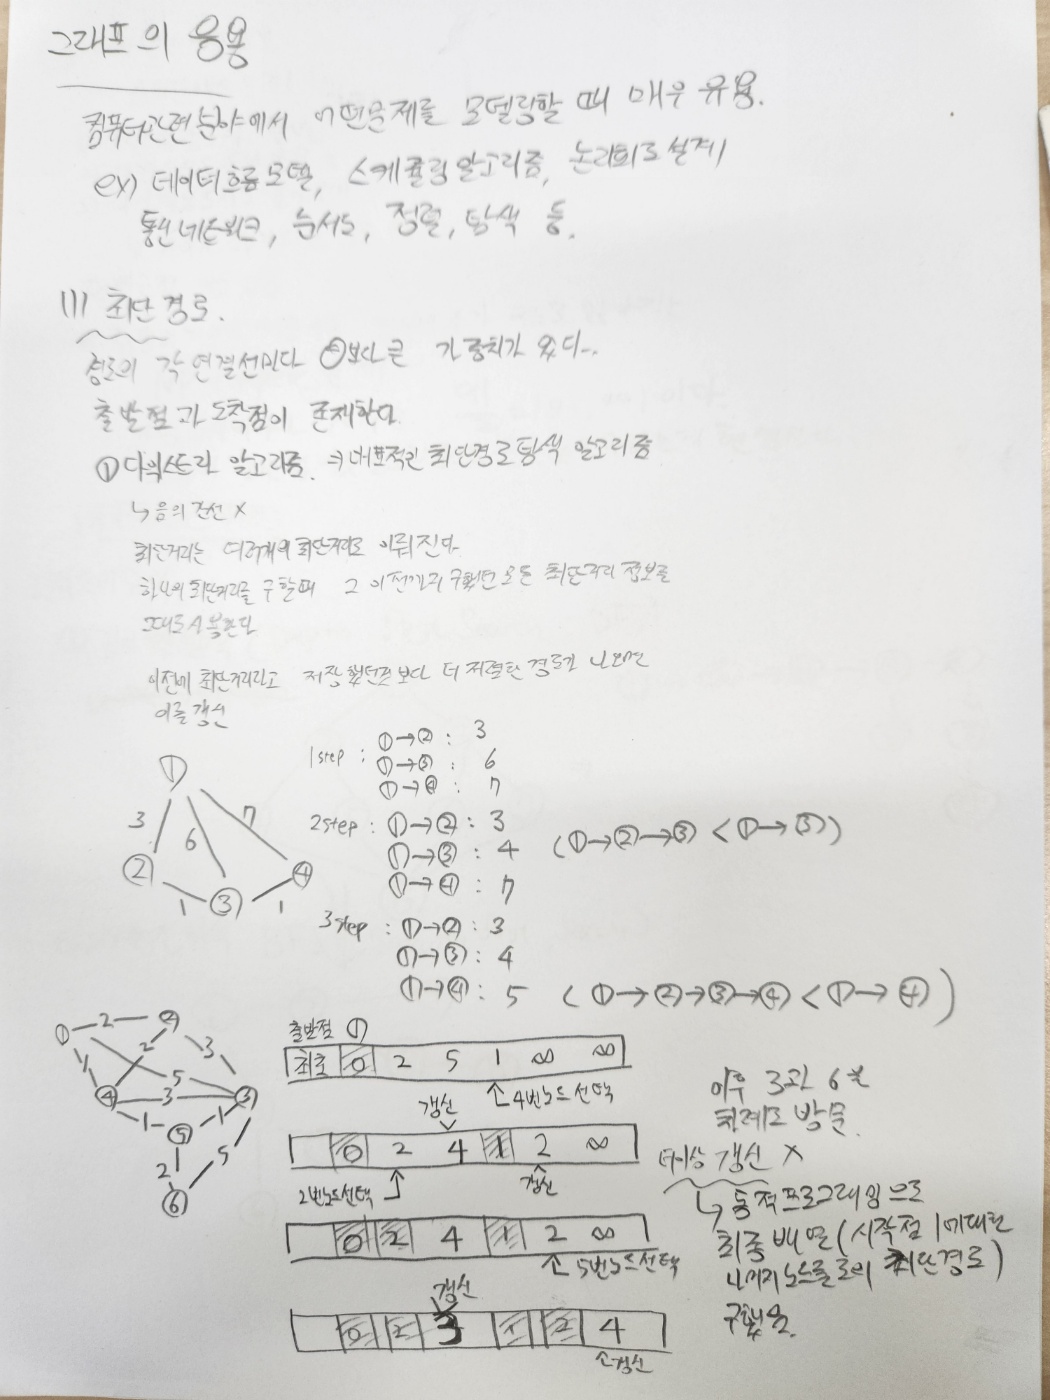 그래프의 응용
컴퓨터관련 분야에서 어떤문제를 모델링할 때 매우 유용.
ex) 데이터흐름모델, 스케쥴링 알고리즘, 논리회로 설계
통신네트워크, 순서도, 정렬, 탐색 등.
111 최단 경로.
경로의 각 연결선마다 0보다 큰 가중치가 있다.
출발점과 도착점이 존재한다.
① 다익스트라 알고리즘. → 대표적인 최단경로탐색 알고리즘
↳ 음의 간선 X
최단거리는 여러개의 최단거리로 이뤄진다.
하나의 최단거리를 구할때 그 이전까지 구했던 모든 최단거리 정보를
그대로 사용한다
이전에 최단거리라고 저장했던것보다 더 저렴한 경로가 나오면
이를 갱신
1step : ①→② : 3
①→③ : 6
①→④ : 7
2step : ①→② : 3
①→③ : 4 (①→②→③ < ①→③)
①→④ : 7
3step : ①→② : 3
①→③ : 4
①→④ : 5 (①→②→③→④ < ①→④)
①
3 6 7
② ③ ④
1 1
① 2 ②
1 2 5 3
④ 3 ③
1 ⑤ 1
2 5
⑥
출발점 ①
최초 0 2 5 1 ∞ ∞
↑ 4번노드 선택
갱신
0 2 4 1 2 ∞
2번노드선택 ↑ 갱신
0 2 4 1 2 ∞
↑ 5번노드선택
갱신
0 2 3 1 2 4
↑갱신
이후 3과 6을
차례로 방문.
더이상 갱신 X
↳ 동적프로그래밍으로
최종 배열(시작점 1에대한
나머지 노드들로의 최단경로)
구했음.